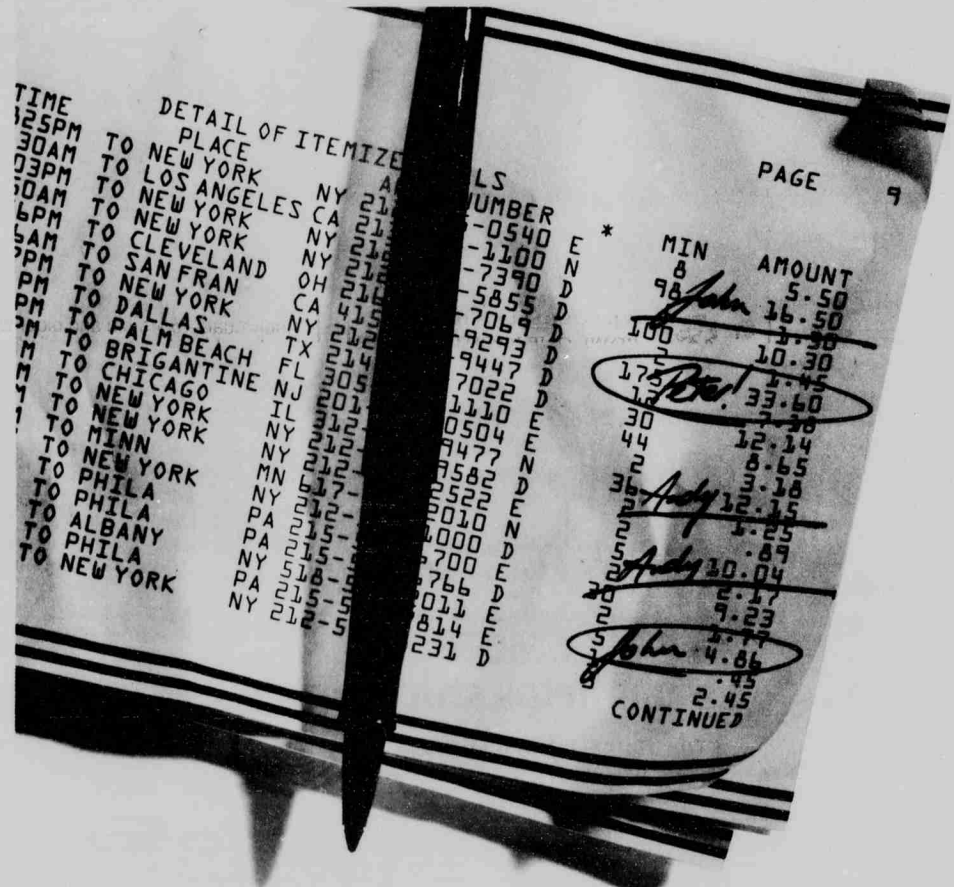 PAGE 9
DETAIL OF ITEMIZE LS
TIME PLACE A NUMBER * MIN AMOUNT
25PM TO NEW YORK NY 21 -0540 E 8 5.50
30AM TO LOS ANGELES CA 21 -1100 N 98 John 16.50
03PM TO NEW YORK NY 21 -7390 D
50AM TO NEW YORK NY 212 -5855 D 100 10.30
6PM TO CLEVELAND OH 216 -7069 D 2 1.45
6AM TO SAN FRAN CA 415 -9293 D 175 Peter! 33.60
PM TO NEW YORK NY 212 -9447 D
PM TO DALLAS TX 214 7022 D 30 12.14
PM TO PALM BEACH FL 305 1110 44 8.65
PM TO BRIGANTINE NJ 201 0504 2 3.18
M TO CHICAGO IL 312 9477 36 Andy 12.15
M TO NEW YORK NY 212 9582 2 1.25
TO NEW YORK NY 212- 2522 2 .89
TO MINN MN 617- 2010 Andy 10.04
TO NEW YORK NY 212- 1000 2 2.17
TO PHILA PA 215- 700 9.23
TO PHILA PA 215- 766 2 1.77
TO ALBANY NY 518- 011 5 John 4.86
TO PHILA PA 215-5 814 E .45
TO NEW YORK NY 212-5 231 D 2.45
CONTINUED